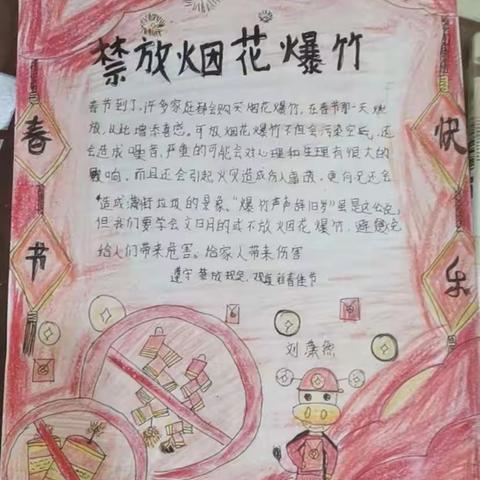 禁放烟花爆竹
春节到了,许多家庭都会购买烟花爆竹,在春节那一天燃
放,从此增添喜感。可放烟花爆竹不但会污染空气,还
会造成噪音,严重的可能会对心理和生理有很大的
影响,而且还会引起火灾造成伤人事故,更何况还会
造成满街垃圾的景象。"爆竹声声辞旧岁"虽是这么说,
但我们要学会文日月的式不放烟花爆竹,避免
给人们带来危害。给家人带来伤害
遵守禁放规定,欢度新春佳节
春节
快乐
刘